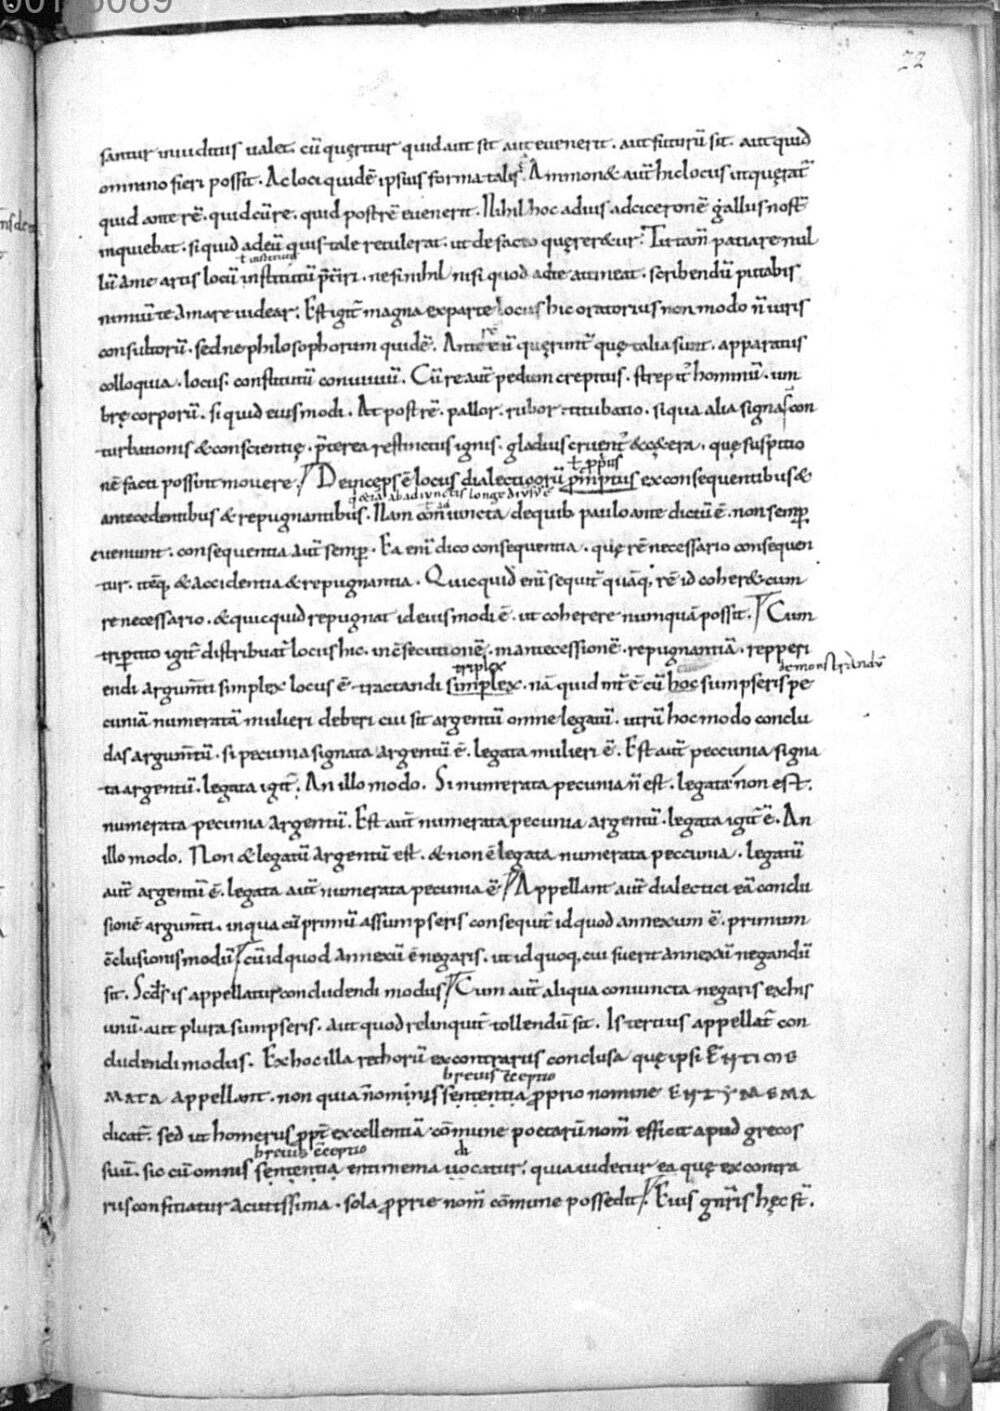 22
santur inuditus ualet. cū queritur quid aut sit aut euenerit. aut futurū sit. aut quid
omnino fieri possit. Ac loci quidē ipsius forma talis. Ammon& aut̄ hic locus ut querat̄
quid ante rē. quid cū re. quid post rē euenerit. Nihil hoc ad ius ad ciceronē gallus nost̄
inquiebat. si quid ad eū quis tale retulerat. ut de facto querer&ur. Tu tam̄ patiare nul
lū a me artis locū institutū p̄t̄iri. ne si nihil nisi quod ad te attineat. scribendū putabis
nimiū te amare uidear. Est igit̄ magna ex parte locus hic oratorius non modo n̄ iuris
consultorū. sed ne philosophorum quidē. Ante rē eū querunt̄ que talia sunt. apparatus
colloquia. locus. constitutū conuiuiū. Cū re aut̄ pedum crepitus. strepit̄ hominū. um
bre corporū. si quid eius modi. At post rē. pallor. rubor. titubatio. si qua alia signa con
turbationis & conscientie. p̄terea restinctus ignis. gladius cruent̄ & c&era. que suspitio
nē facti possint mouere. Deinceps ē locus dialecticorū p̄mptus ex consequentibus &
antecedentibus & repugnantibus. Nam coniuncta de quib; paulo ante dictū ē. non semp̄
eueniunt. consequentia aut̄ semp̄. Ea eni dico consequentia. que rē necessario consequen
tur. itēq; & accidentia & repugnantia. Quicquid eni sequit̄ quāq; rē id coher& cum
re necessario. & quicquid repugnat id eius modi ē. ut coherere numquā possit. Cum
tripertito igit̄ distribuat̄ locus hic. in c̄secutionē. in antecessionē. repugnantiā. repperi
endi argum̄ti simplex locus ē. tractandi simplex. triplex nā quid int̄ ē cū hoc sumpseris pe
cuniā numeratā mulieri deberi cui sit argentū omne legatū. utrū hoc modo conclu
das argum̄tū. si pecunia signata argentū ē. legata mulieri ē. Est aut̄ peccunia signa
ta argentū. legata igit̄. An illo modo. Si numerata pecunia n̄ est. legata non est.
numerata pecunia argentū. Est aut̄ numerata pecunia argentū. legata igit̄ ē. An
illo modo. Non & legatū argentū est. & non ē legata numerata peccunia. legatū
aut̄ argentū ē. legata aut̄ numerata pecunia ē. Appellant aut̄ dialectici eā conclu
sionē argum̄ti. in qua cū primū assumpseris consequit̄ id quod annexum ē. primum
c̄clusionis modū. cū id quod annexū ē negaris. ut id quoq; cui fuerit annexū negandū
sit. Scd̄s is appellatur concludendi modus. Cum aut̄ aliqua coniuncta negaris ex his
unū aut plura sumpseris. aut quod relinquit̄ tollendū sit. Is tertius appellat̄ con
cludendi modus. Ex hoc illa rethorū ex contrariis conclusa que ipsi ENTIME
MATA appellant. non quia n̄ ominis sententia brevis c̄ceptio proprio nomine ENTYMEMA
dicat̄. sed ut homerus ppt̄ excellentiā cōmune poetarū nom̄ efficit apud grecos
suū. sic cū omnis sententia brevis c̄ceptio entimema uocatur. quia uidetur ea que ex contra
riis conficiatur acutissima. sola proprie nom̄ cōmune possedit. Eius gn̄ris hec st̄.